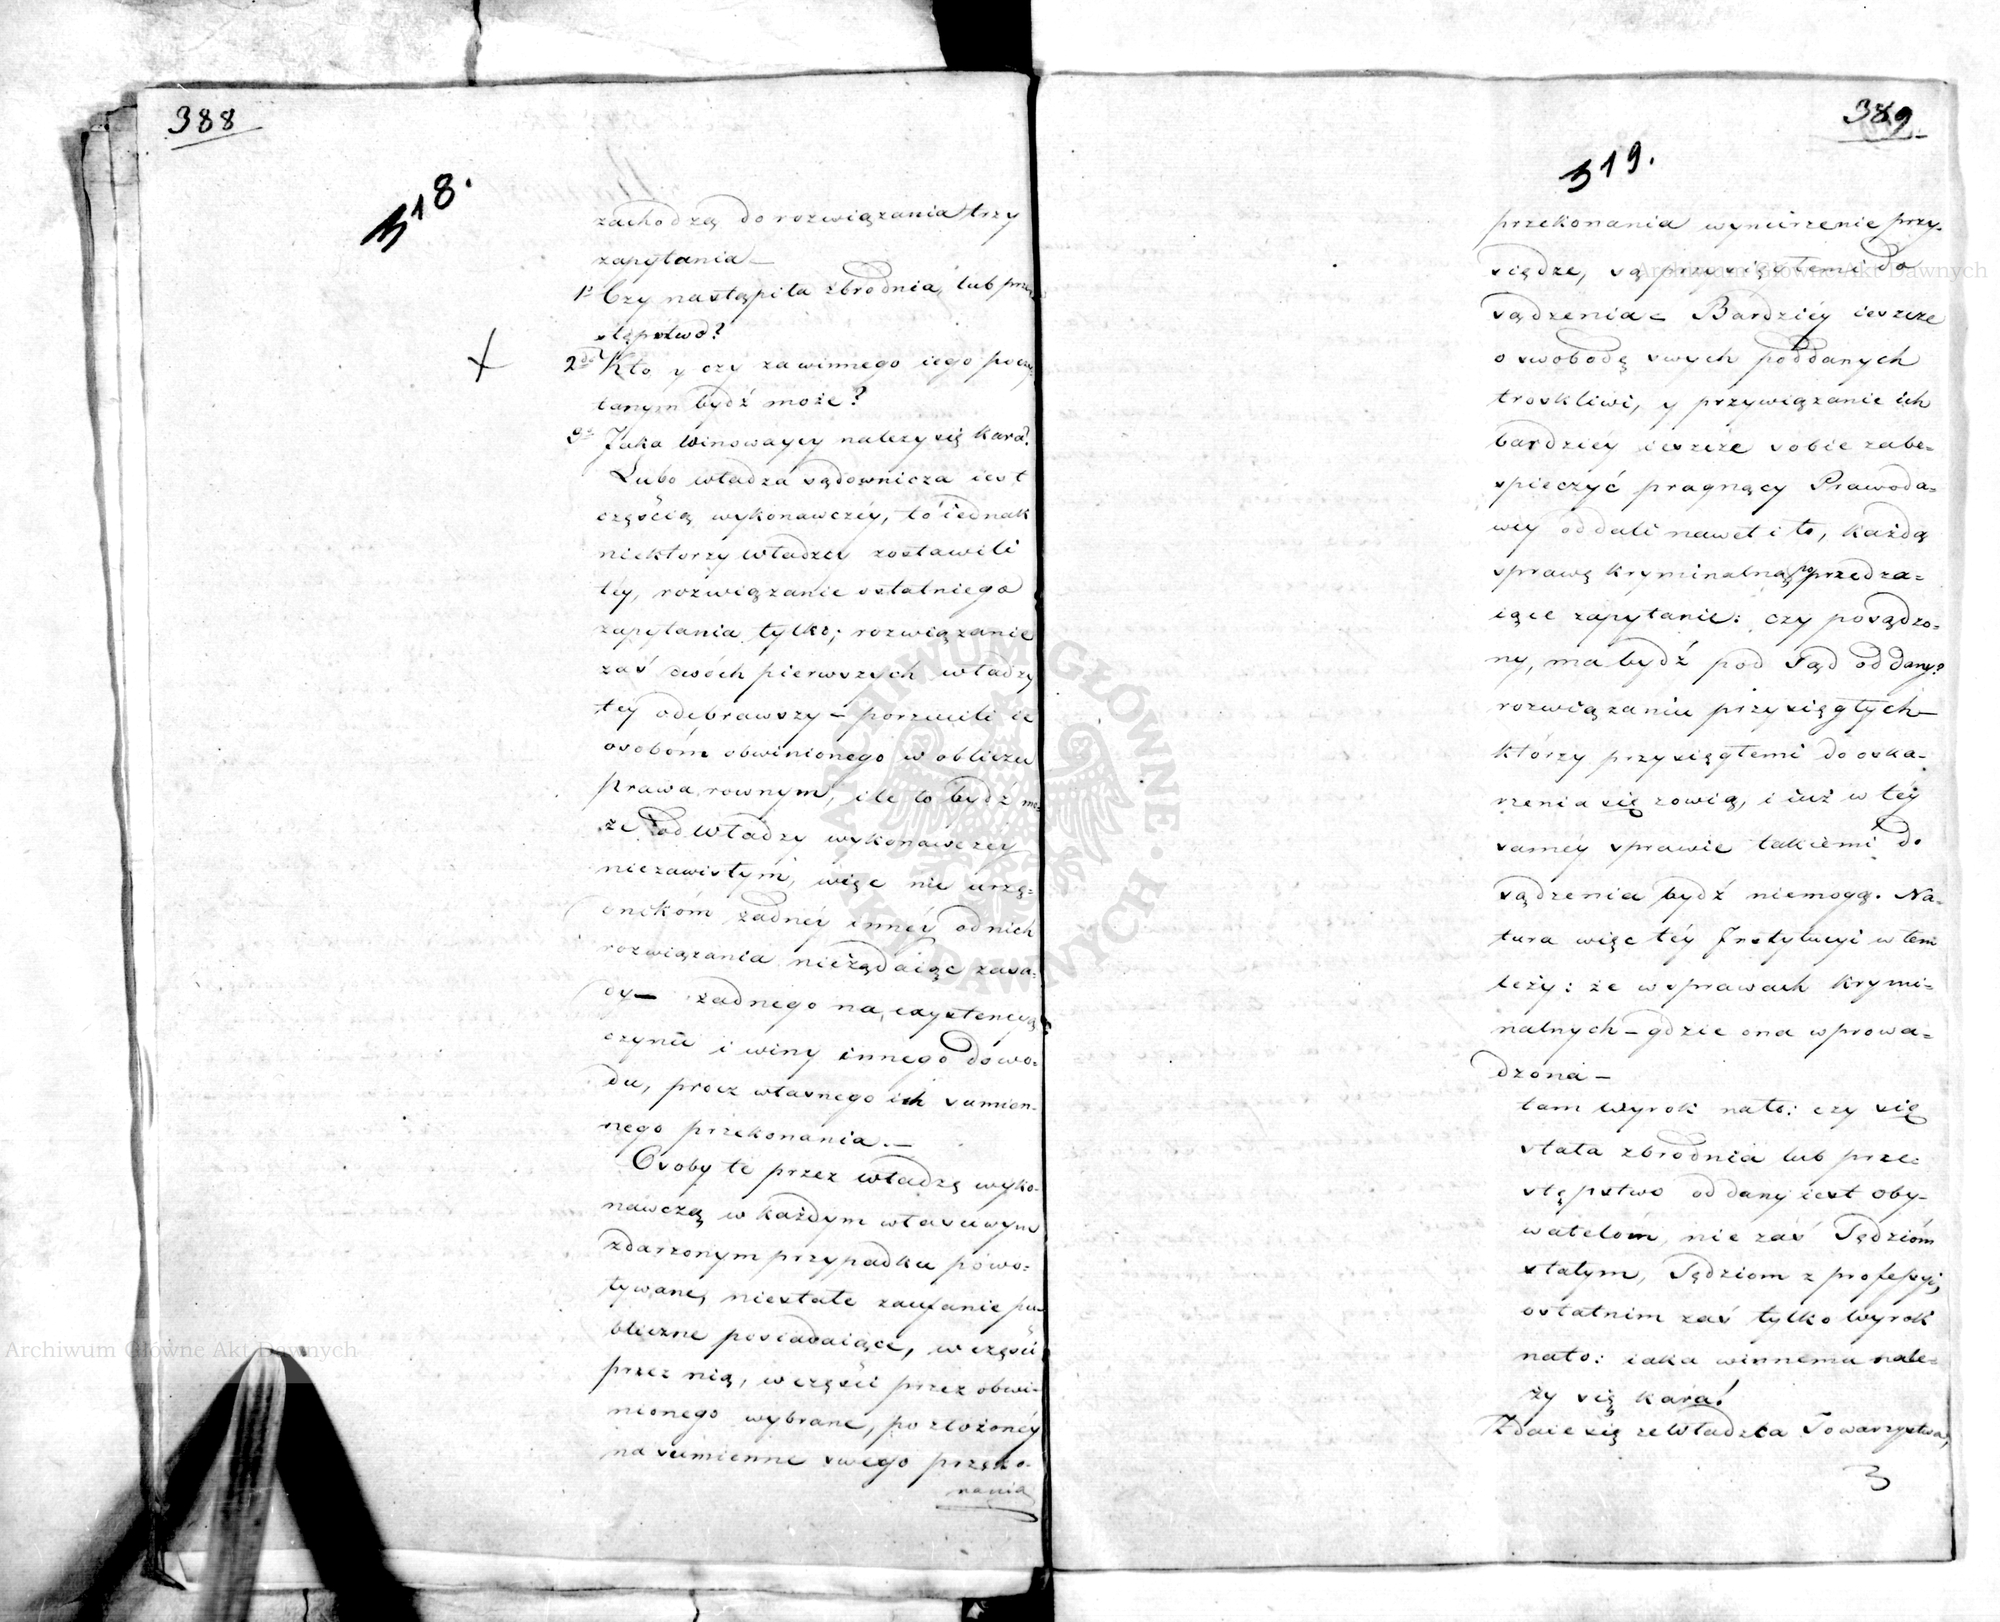 388
318.
zachodzą do rozwiązania trzy
zapytania —
1º Czy nastąpiła zbrodnia, lub prze-
stępstwo?
2do Kto y czy za winnego iego poczy-
tanym bydź może?
3o Jaka winowaycy należy się kara?
Lubo władza sądownicza iest
częścią wykonawczéy, to iednak
niektorzy władzcy zostawili
téy, rozwiązanie ostatniego
zapytania tylko; rozwiązanie
zaś dwóch pierwszych władzy
téy odebrawszy — porzucili ie
osobóm obwinionego w obliczu
prawa rownym, ile to bydź mo-
że od władzy wykonawczéy
niezawisłym, więc nie urzę-
dnikóm żadnéy innéy od nich
rozwiązania nieżądaiąc zasa-
dy — żadnego na exystencyą
czynu i winy innego dowo-
du, procz własnego ich sumien-
nego przekonania. —
Osoby te przez władzę wyko-
nawczą w każdym właściwym
zdarzonym przypadku powo-
ływane, niestałe zaufanie pu-
bliczne posiadaiące, w części
przez nią, w części przez obwi-
nionego wybrane, po złożonéy
na sumienne swego przeko-
nania
389
319.
przekonania wynurzenie przy-
siędze, są przysięgłemi do
sądzenia — Bardziéy ieszcze
o swobodę swych poddanych
troskliwi, y przywiązanie ich
bardziéy ieszcze sobie zabe-
spieczyć pragnący Prawoda-
wcy oddali nawet i to, każdą
sprawę kryminalną poprzedza-
iące zapytanie: czy posądzo-
ny, ma bydź pod Sąd oddany?
rozwiązaniu przysięgłych —
którzy przysięgłemi do oska-
rzenia się zowią, i iuż w téy
saméy sprawie takiemi do
sądzenia bydź niemogą. Na-
tura więc téy Instytucyi w tem
leży: że w sprawach krymi-
nalnych — gdzie ona wprowa-
dzona —
tam wyrok nato: czy się
stała zbrodnia lub prze-
stępstwo oddany iest oby-
watelóm, nie zaś Sędzióm
stałym, Sędziom z professyi,
ostatnim zaś tylko wyrok
nato: iaka winnemu nale-
ży się kara!
Zdaie się że władzca Towarzystwa,
Archiwum Główne Akt Dawnych
Archiwum Główne Akt Dawnych
ARCHIWUM GŁÓWNE · AKT DAWNYCH ·